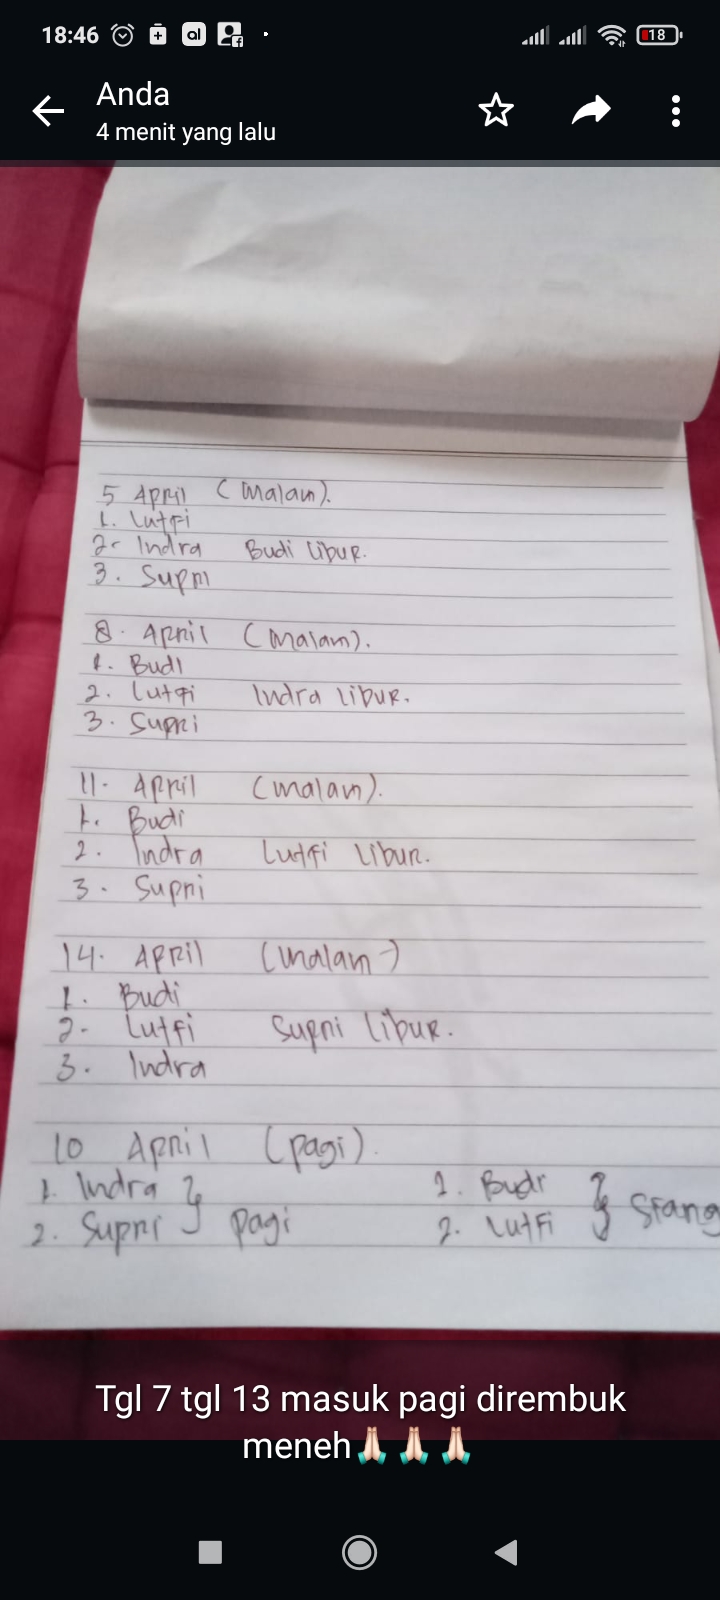 18:46
18
Anda
4 menit yang lalu
5 April (Malam).
1. Lutfi
2. Indra Budi libur.
3. Supri
8. April (Malam).
1. Budi
2. Lutfi Indra libur.
3. Supri
11. April (malam).
1. Budi
2. Indra Lutfi libur.
3. Supri
14. April (malam)
1. Budi
2. Lutfi Supri libur.
3. Indra
10 April (pagi).
1. Indra 1. Budi
2. Supri } pagi 2. Lutfi } Siang
Tgl 7 tgl 13 masuk pagi dirembuk
meneh🙏🏻🙏🏻🙏🏻